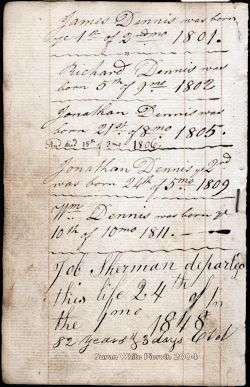 James Dennis was born
ye 1st of 2nd mo 1801.
Richard Dennis was
born 5th of 9mo 1802
Jonathan Dennis was
born 21st of 8mo 1805.
And died 18th of 2mo 1806
Jonathan Dennis ye 2nd
was born 24th of 5mo 1809
Wm Dennis was born ye
10th of 10mo 1811.
Job Sherman departed
this life 24th of
the 1mo 1848
82 years & 3 days
Susan White Pieroth 2004